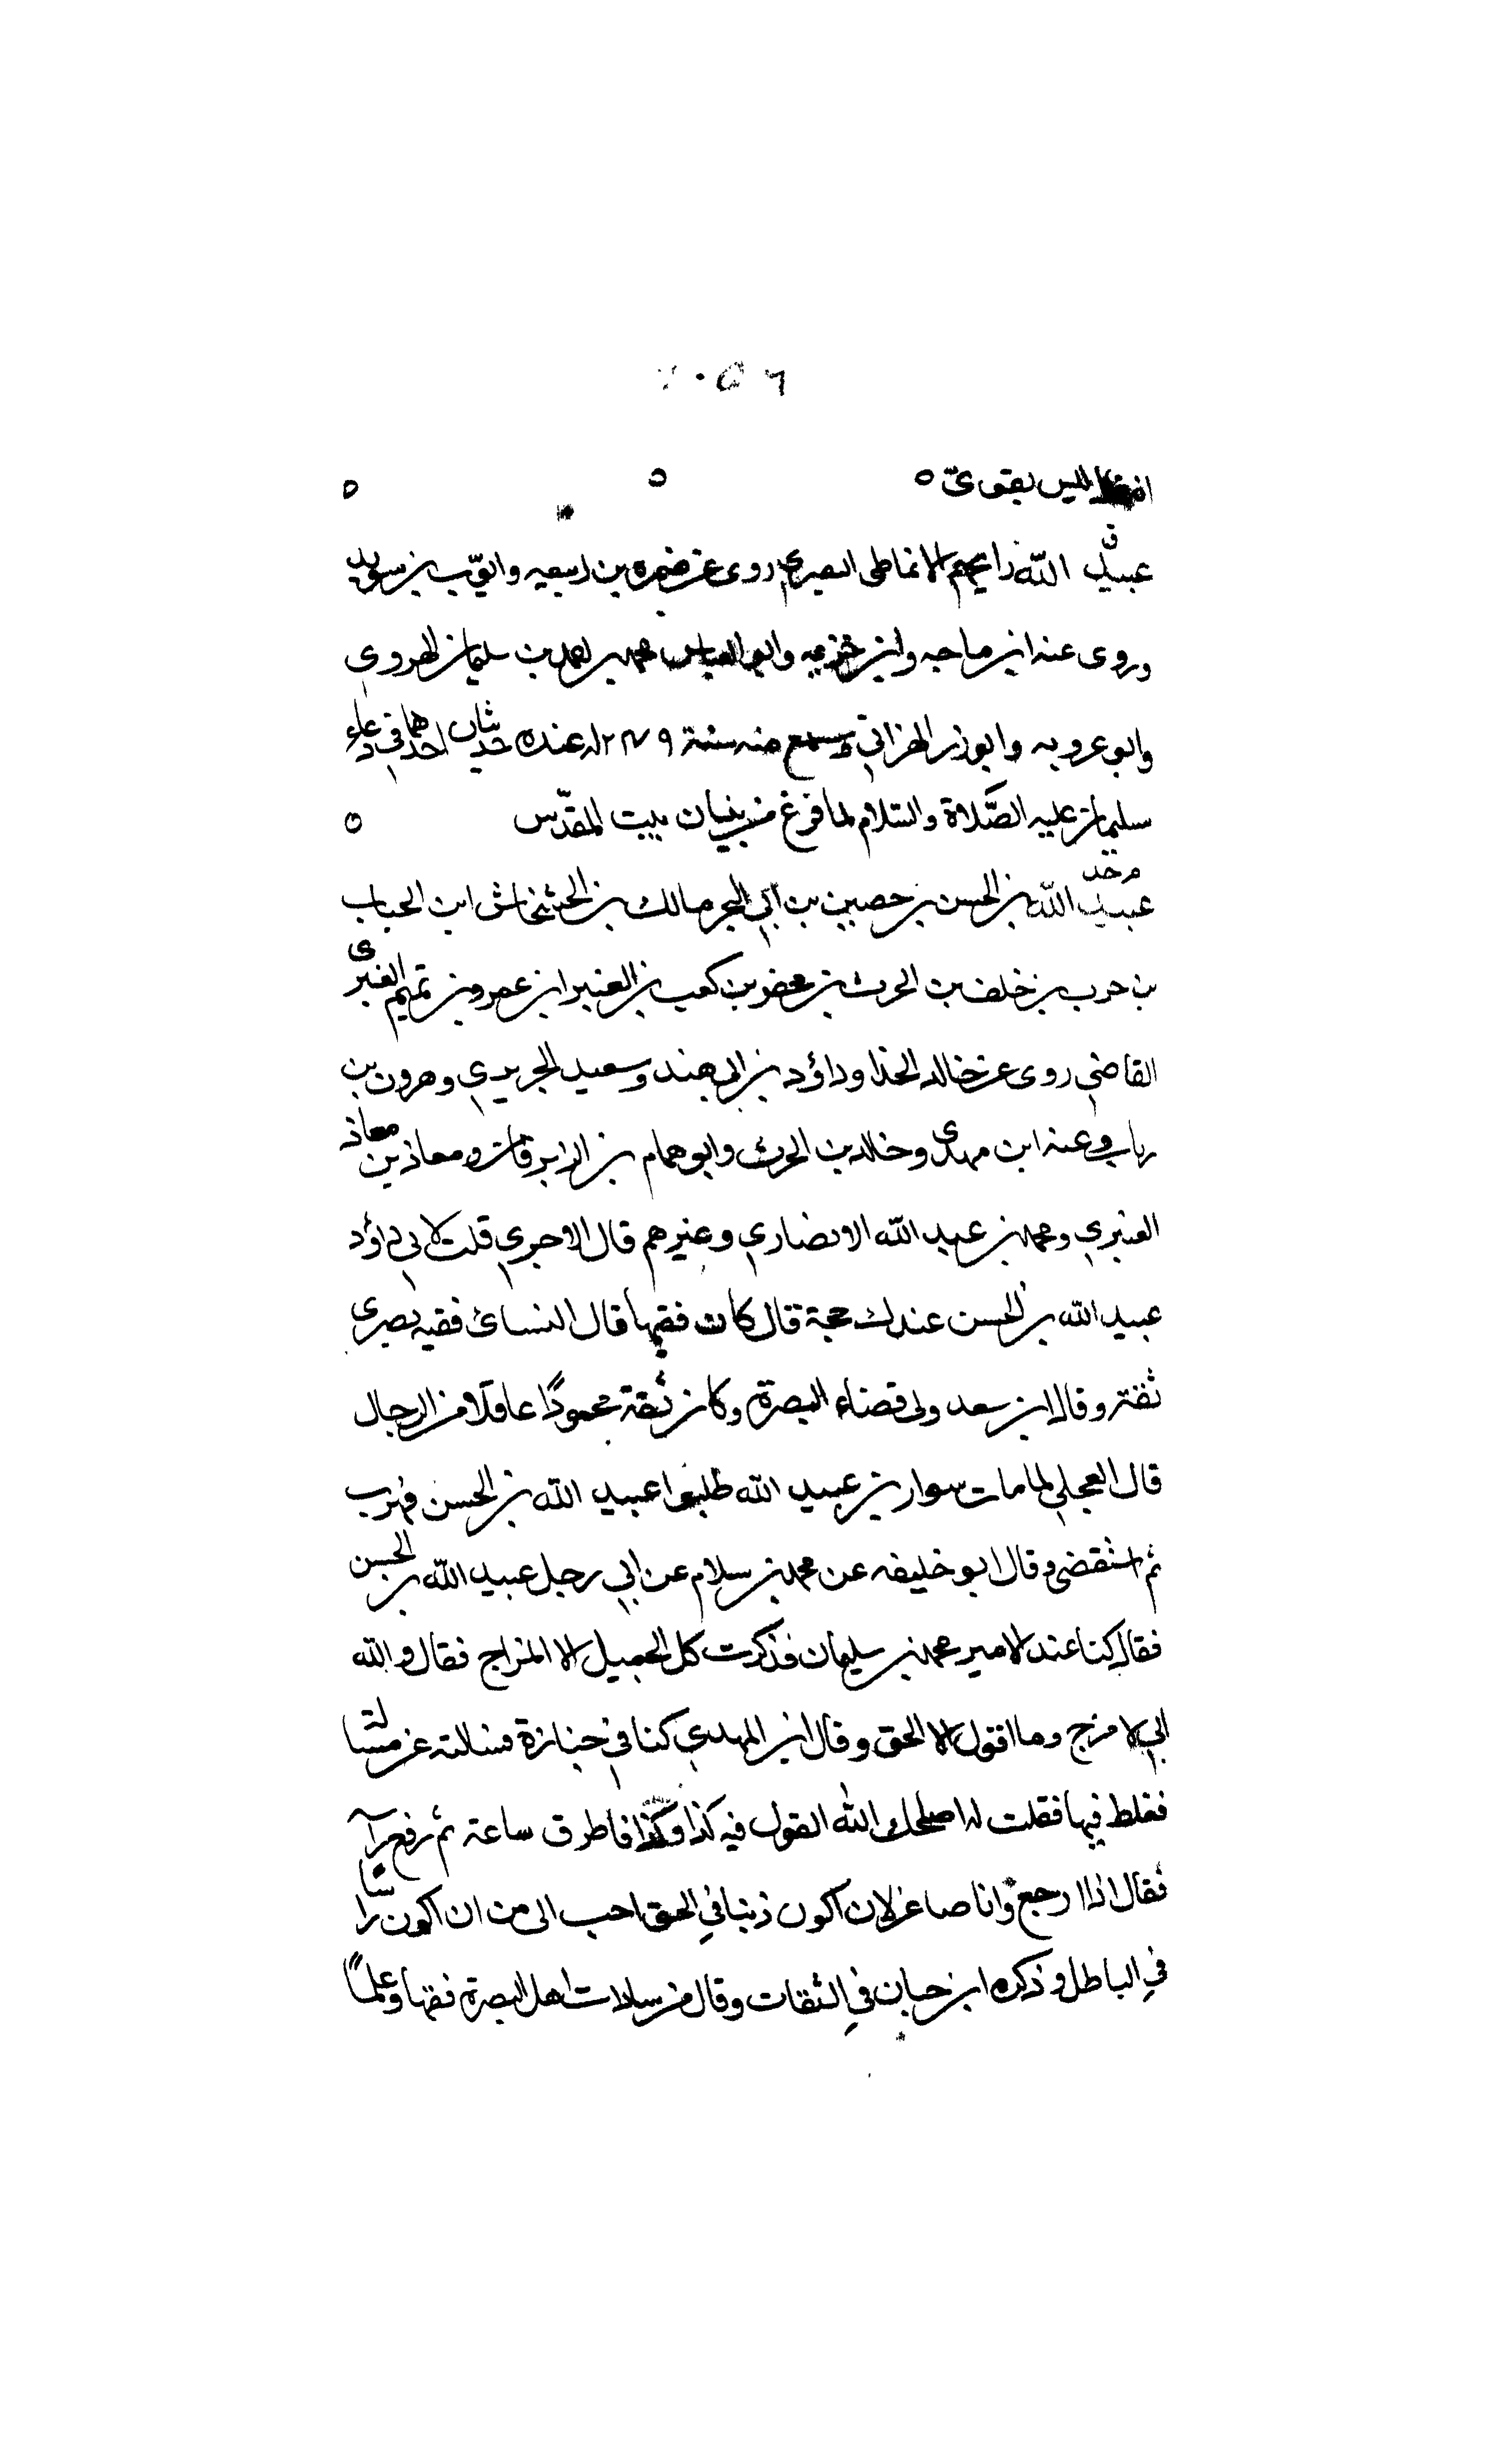 انه ليس بقوي ه ه ه
ق
عبيد الله بن الجهم الانماطي البصري روى عن ضمرة بن ربيعه وايوب بن سويد
وروى عنه ابن ماجه وابن خزيمه وابو العباس محمد بن احمد بن سليمان الهروي
وابو عروبه وابو زر الهزاني وسمع منه سنة ٢٤٩ له عنده حديثان احدهما في دعاء
سليمان عليه الصَّلاة والسّلام لما فرغ من بنيان بيت المقدّس ه
م خد
عبيد الله بن الحسن بن حصين بن ابي الحر مالك بن الخشخاش ابن الحباب
بن حرب بن خلف بن الحرث بن مجفر بن كعب بن العنبر ابن عمرو بن تميم العنبري
القاضي روى عن خالد الحذا وداؤد بن ابي هند وسعيد الجريري وهرون بن
رياب وعنه ابن مهدي وخالد بن الحرث وابو همام بن الزبرقان ومعاذ بن معاذ
العنبري ومحمد بن عبد الله الانصاري وغيرهم قال الاجري قلت لابي داؤد
عبيد الله بن الحسن عندك حجة قال كان فقيها قال النسائ فقيه بصري
ثقة وقال ابن سعد ولى قضاء البصرة وكان ثقة محمودًا عاقلا من الرجال
قال العجلي لما مات سوار بن عبيد الله طلبوا عبيد الله بن الحسن فهرب
ثم استقضى وقال ابو خليفه عن محمد بن سلام عن ابي رجل عبيد الله بن الحسن
فقال كنا عند الامير محمد بن سليمان فذكرت كل الجميل الا المزاج فقال والله
اني لا مزج وما اقول الا الحق وقال ابن المهدي كنا في جنازة فسالته عن مسالة
فغلط فيها فقلت له اصلحك الله القول فيه كذا وكذا فاطرق ساعة ثم رفع راسه
فقال اذا ارجع وانا صاغر لان اكون ذنبا في الحق احب الى من ان اكون راسا
في الباطل وذكره ابن حبان في الثقات وقال من سادات اهل البصرة فقها وعلمًا